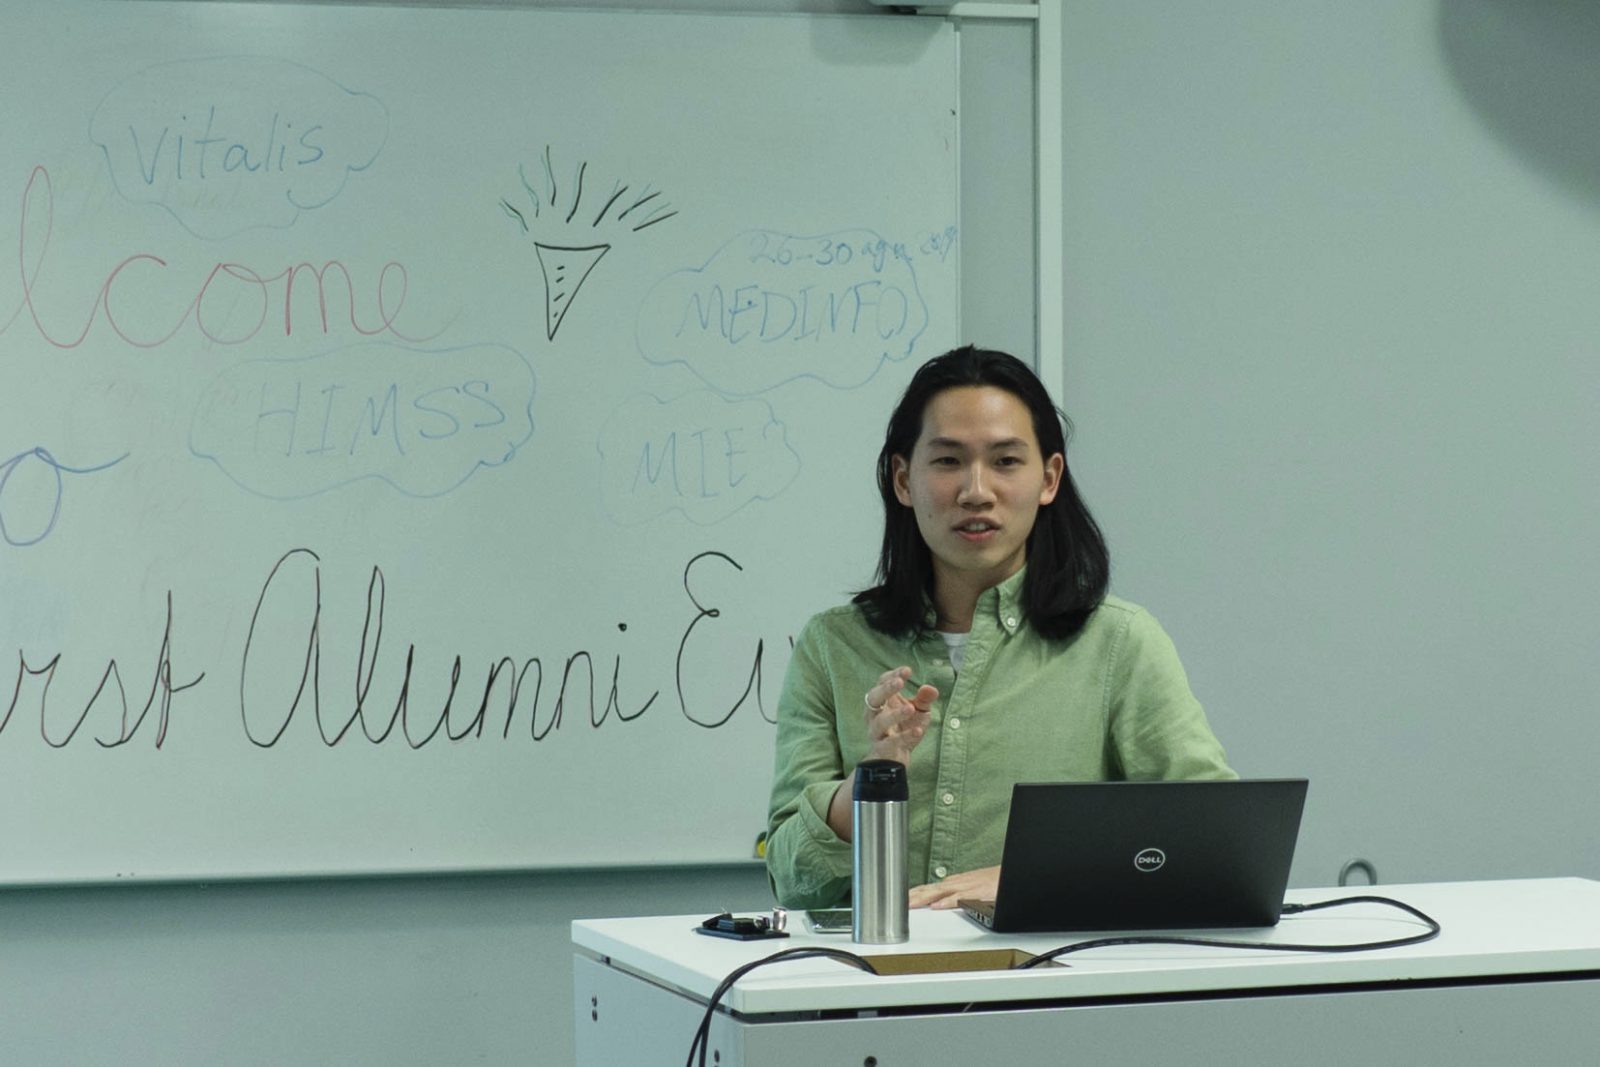 Vitalis
lcome
26-30 aug 2019
MEDINFO
HIMSS
MIE
o
rst Alumni Ev
DELL